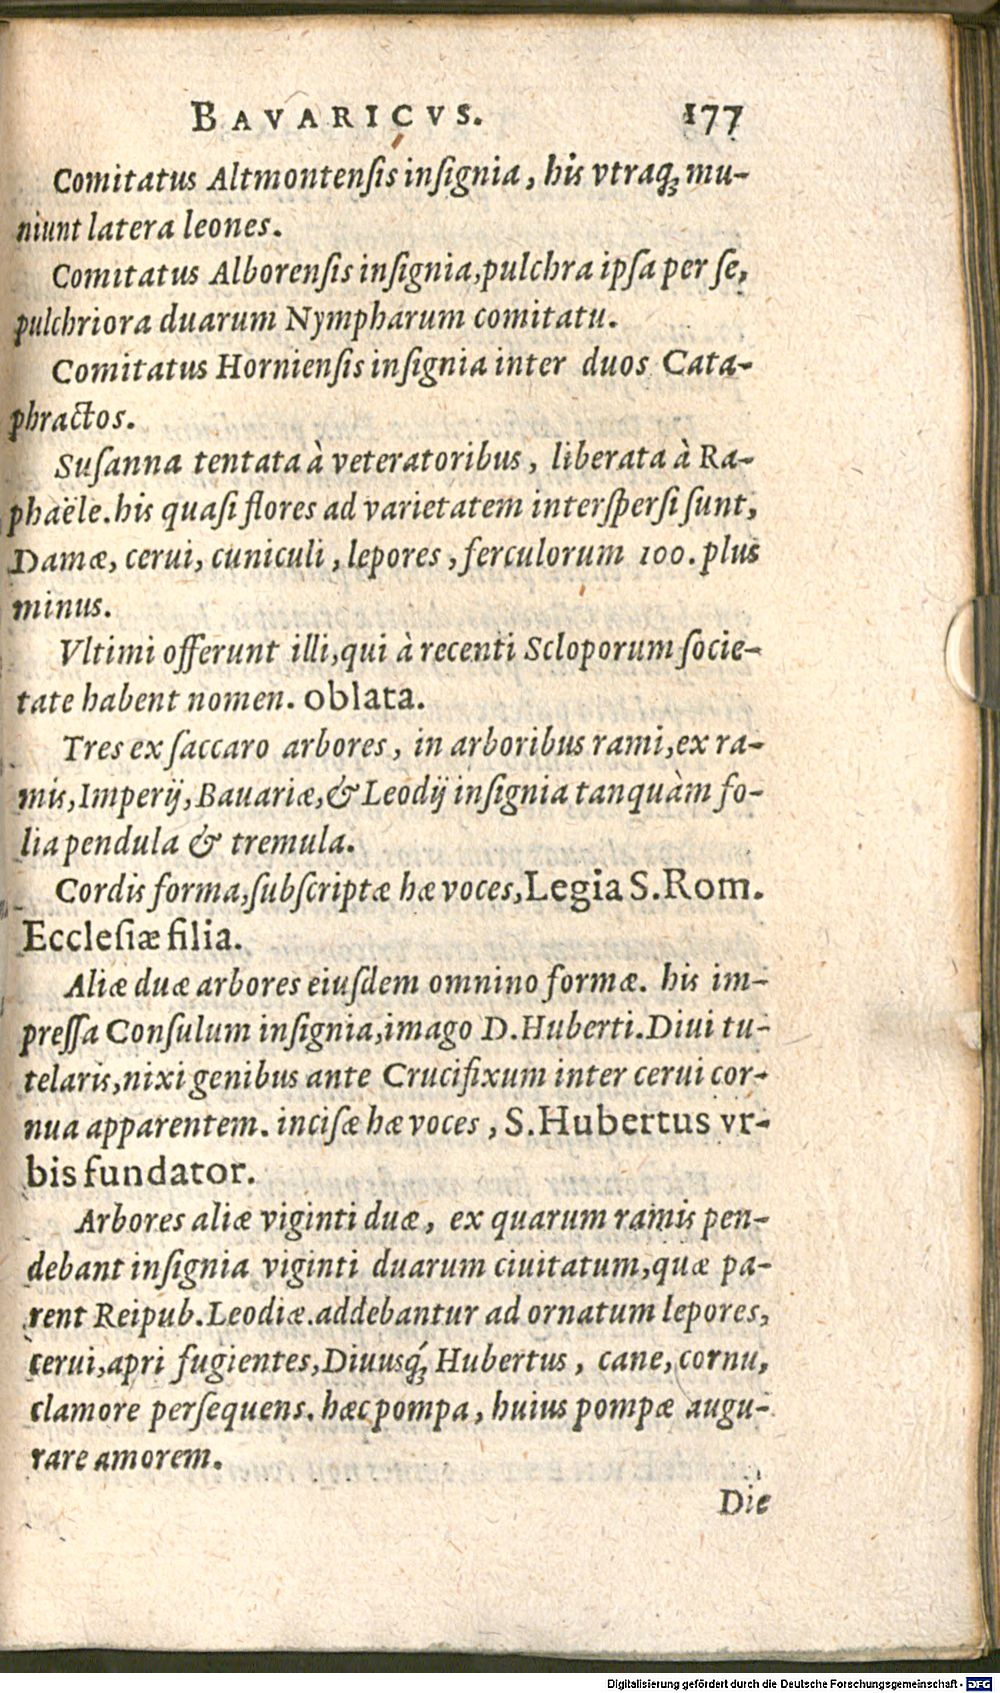 BAVARICVS. 177
Comitatus Altmontenſis inſignia, his vtraq; mu-
niunt latera leones.
Comitatus Alborenſis inſignia,pulchra ipſa per ſe,
pulchriora duarum Nympharum comitatu.
Comitatus Hornienſis inſignia inter duos Cata-
phractos.
Suſanna tentata à veteratoribus, liberata à Ra-
phaële.his quaſi flores ad varietatem interſperſi ſunt,
Damæ, cerui, cuniculi, lepores, ferculorum 100. plus
minus.
Vltimi offerunt illi,qui à recenti Scloporum ſocie-
tate habent nomen. oblata.
Tres ex ſaccaro arbores, in arboribus rami,ex ra-
mis,Imperij,Bauariæ,& Leodij inſignia tanquàm fo-
lia pendula & tremula.
Cordis forma,ſubſcriptæ hæ voces,Legia S.Rom.
Eccleſiæ filia.
Aliæ duæ arbores eiuſdem omnino formæ. his im-
preſſa Conſulum inſignia,imago D.Huberti.Diui tu-
telaris,nixi genibus ante Crucifixum inter cerui cor-
nua apparentem. inciſæ hæ voces, S.Hubertus vr-
bis fundator.
Arbores aliæ viginti duæ, ex quarum ramis pen-
debant inſignia viginti duarum ciuitatum,quæ pa-
rent Reipub.Leodiæ.addebantur ad ornatum lepores,
cerui,apri fugientes,Diuusq́; Hubertus, cane,cornu,
clamore perſequens. hæc pompa, huius pompæ augu-
rare amorem.
Die
Digitalisierung gefördert durch die Deutsche Forschungsgemeinschaft - DFG